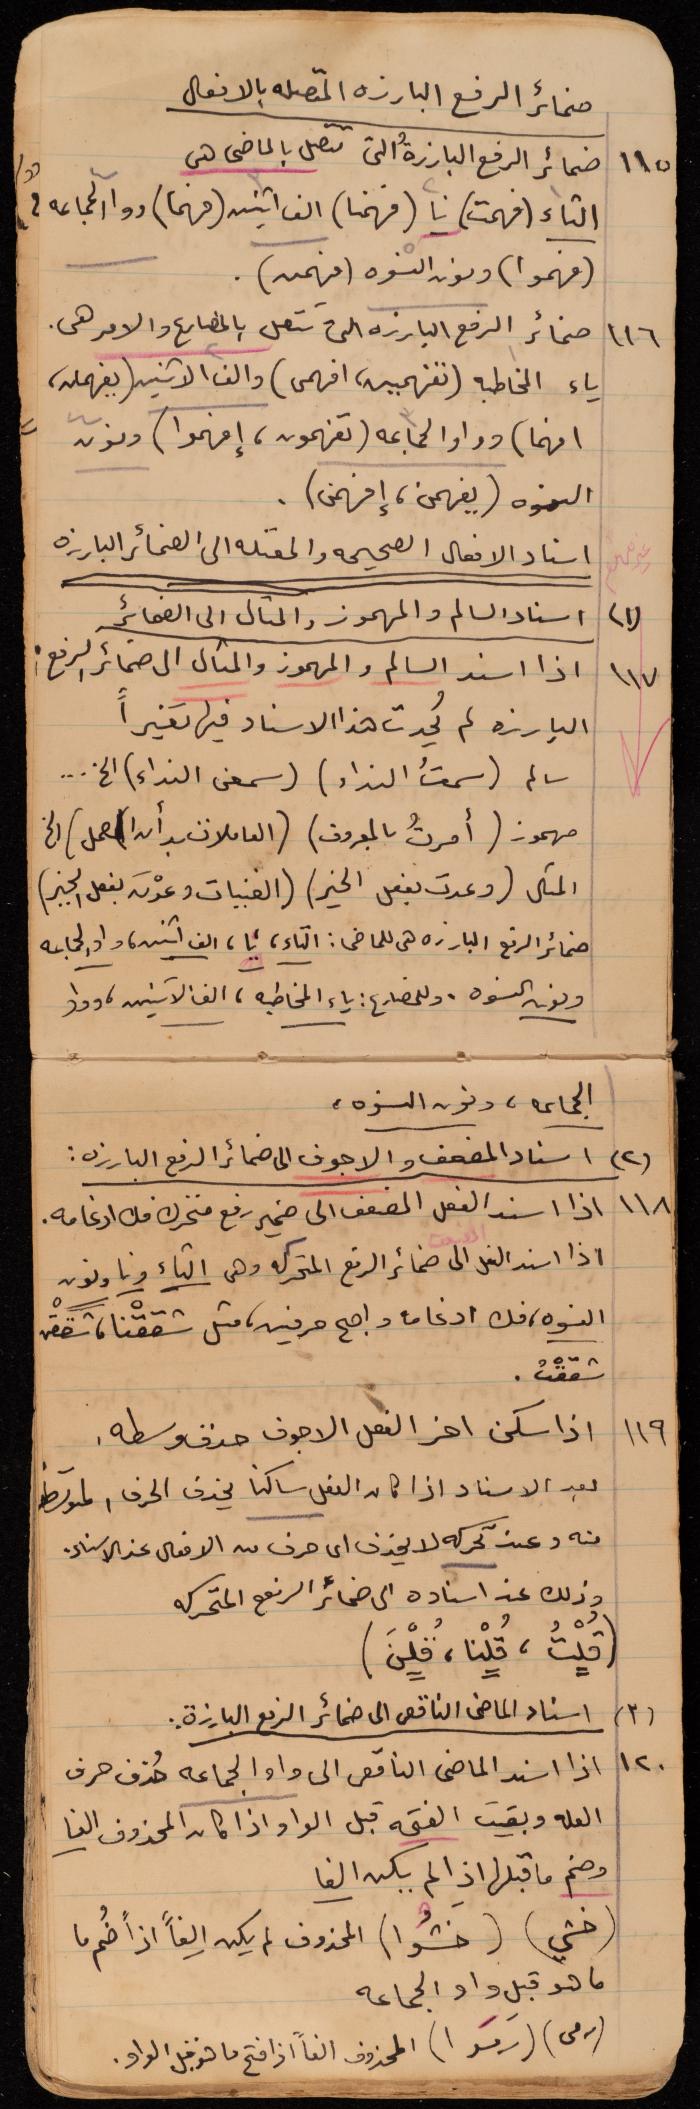 ضمائر الرفع البارزه المتصله بالافعال
١١٥ ضمائر الرفع البارزةُ التى تتصل بالماضى هى
التاء (فهمت) نا (فهمنا) الف اثنين (فهما) وواو الجماعه
(فهموا) ونون النسوه (فهمن) .
١١٦ ضمائر الرفع البارزه التى تتصل بالمضارع والامر هى.
ياء المخاطبه (تفهمين، افهمى) والف الاثنين (يفهمان،
افهما) وواو الجماعه (تفهمون، إفهموا) ونون
النسوه (يفهمن، إفهمن) .
اسناد الافعال الصحيحه والمعتله الى الضمائر البارزه
(١) اسناد السالم والمهموز والمثال الى الضمائر
١١٧ اذا اسند السالم والمهموز والمثال الى ضمائر الرفع
البارزه لم يُحدث هذا الاسناد فيها تغيراً
سالم (سمعتُ النداء) (سمعنى النداء) الخ...
مهموز (أمرتُ بالمعروف) (العاملات بدأن العمل) الخ
المثال (وعدت بفعل الخير) (الفتيات وعدْنَ بفعل الخير)
ضمائر الرفع البارزه هى للماضى: التاء، نا، الف اثنين، واو الجماعه
ونون النسوه. وللمضارع: ياء المخاطبه، الف الاثنين، وواو
الجماعه، ونون النسوه،
(٢) اسناد المضعف والاجوف الى ضمائر الرفع البارزه:
١١٨ اذا اسند الفعل المضعف الى ضمير رفع متحرك فك ادغامه.
المضعف
اذا اسند الفعل الى ضمائر الرفع المتحركه وهى التاء ونا ونون
النسوه، فك ادغامه واصبح حرفين، مثل شققْنا، شققْن
شققْتُ.
١١٩ اذا سكن اخر الفعل الاجوف حذف وسطه.
بعد الاسناد اذا كان الفعل ساكناً يحذف الحرف المتوسط
منه وعند تحركه لا يحذف اى حرف من الافعال عند الاسناد.
وذلك عند اسناده الى ضمائر الرفع المتحركه
(قُلْتُ، قُلْنا، قُلْنَ)
(٣) اسناد الماضى الناقص الى ضمائر الرفع البارزة.
١٢٠ اذا اسند الماضى الناقص الى واو الجماعه حُذف حرف
العله وبقيت الفتحه قبل الواو اذا كان المحذوف الفا
وضم ما قبلها اذا لم يكن الفا
(خشي) (خشُوا) المحذوف لم يكن الِفاً اذاً ضُم ما
ما هو قبل واو الجماعه
(رمى) (رمَوا) المحذوف الفاً اذا فتح ما هو قبل الواو.